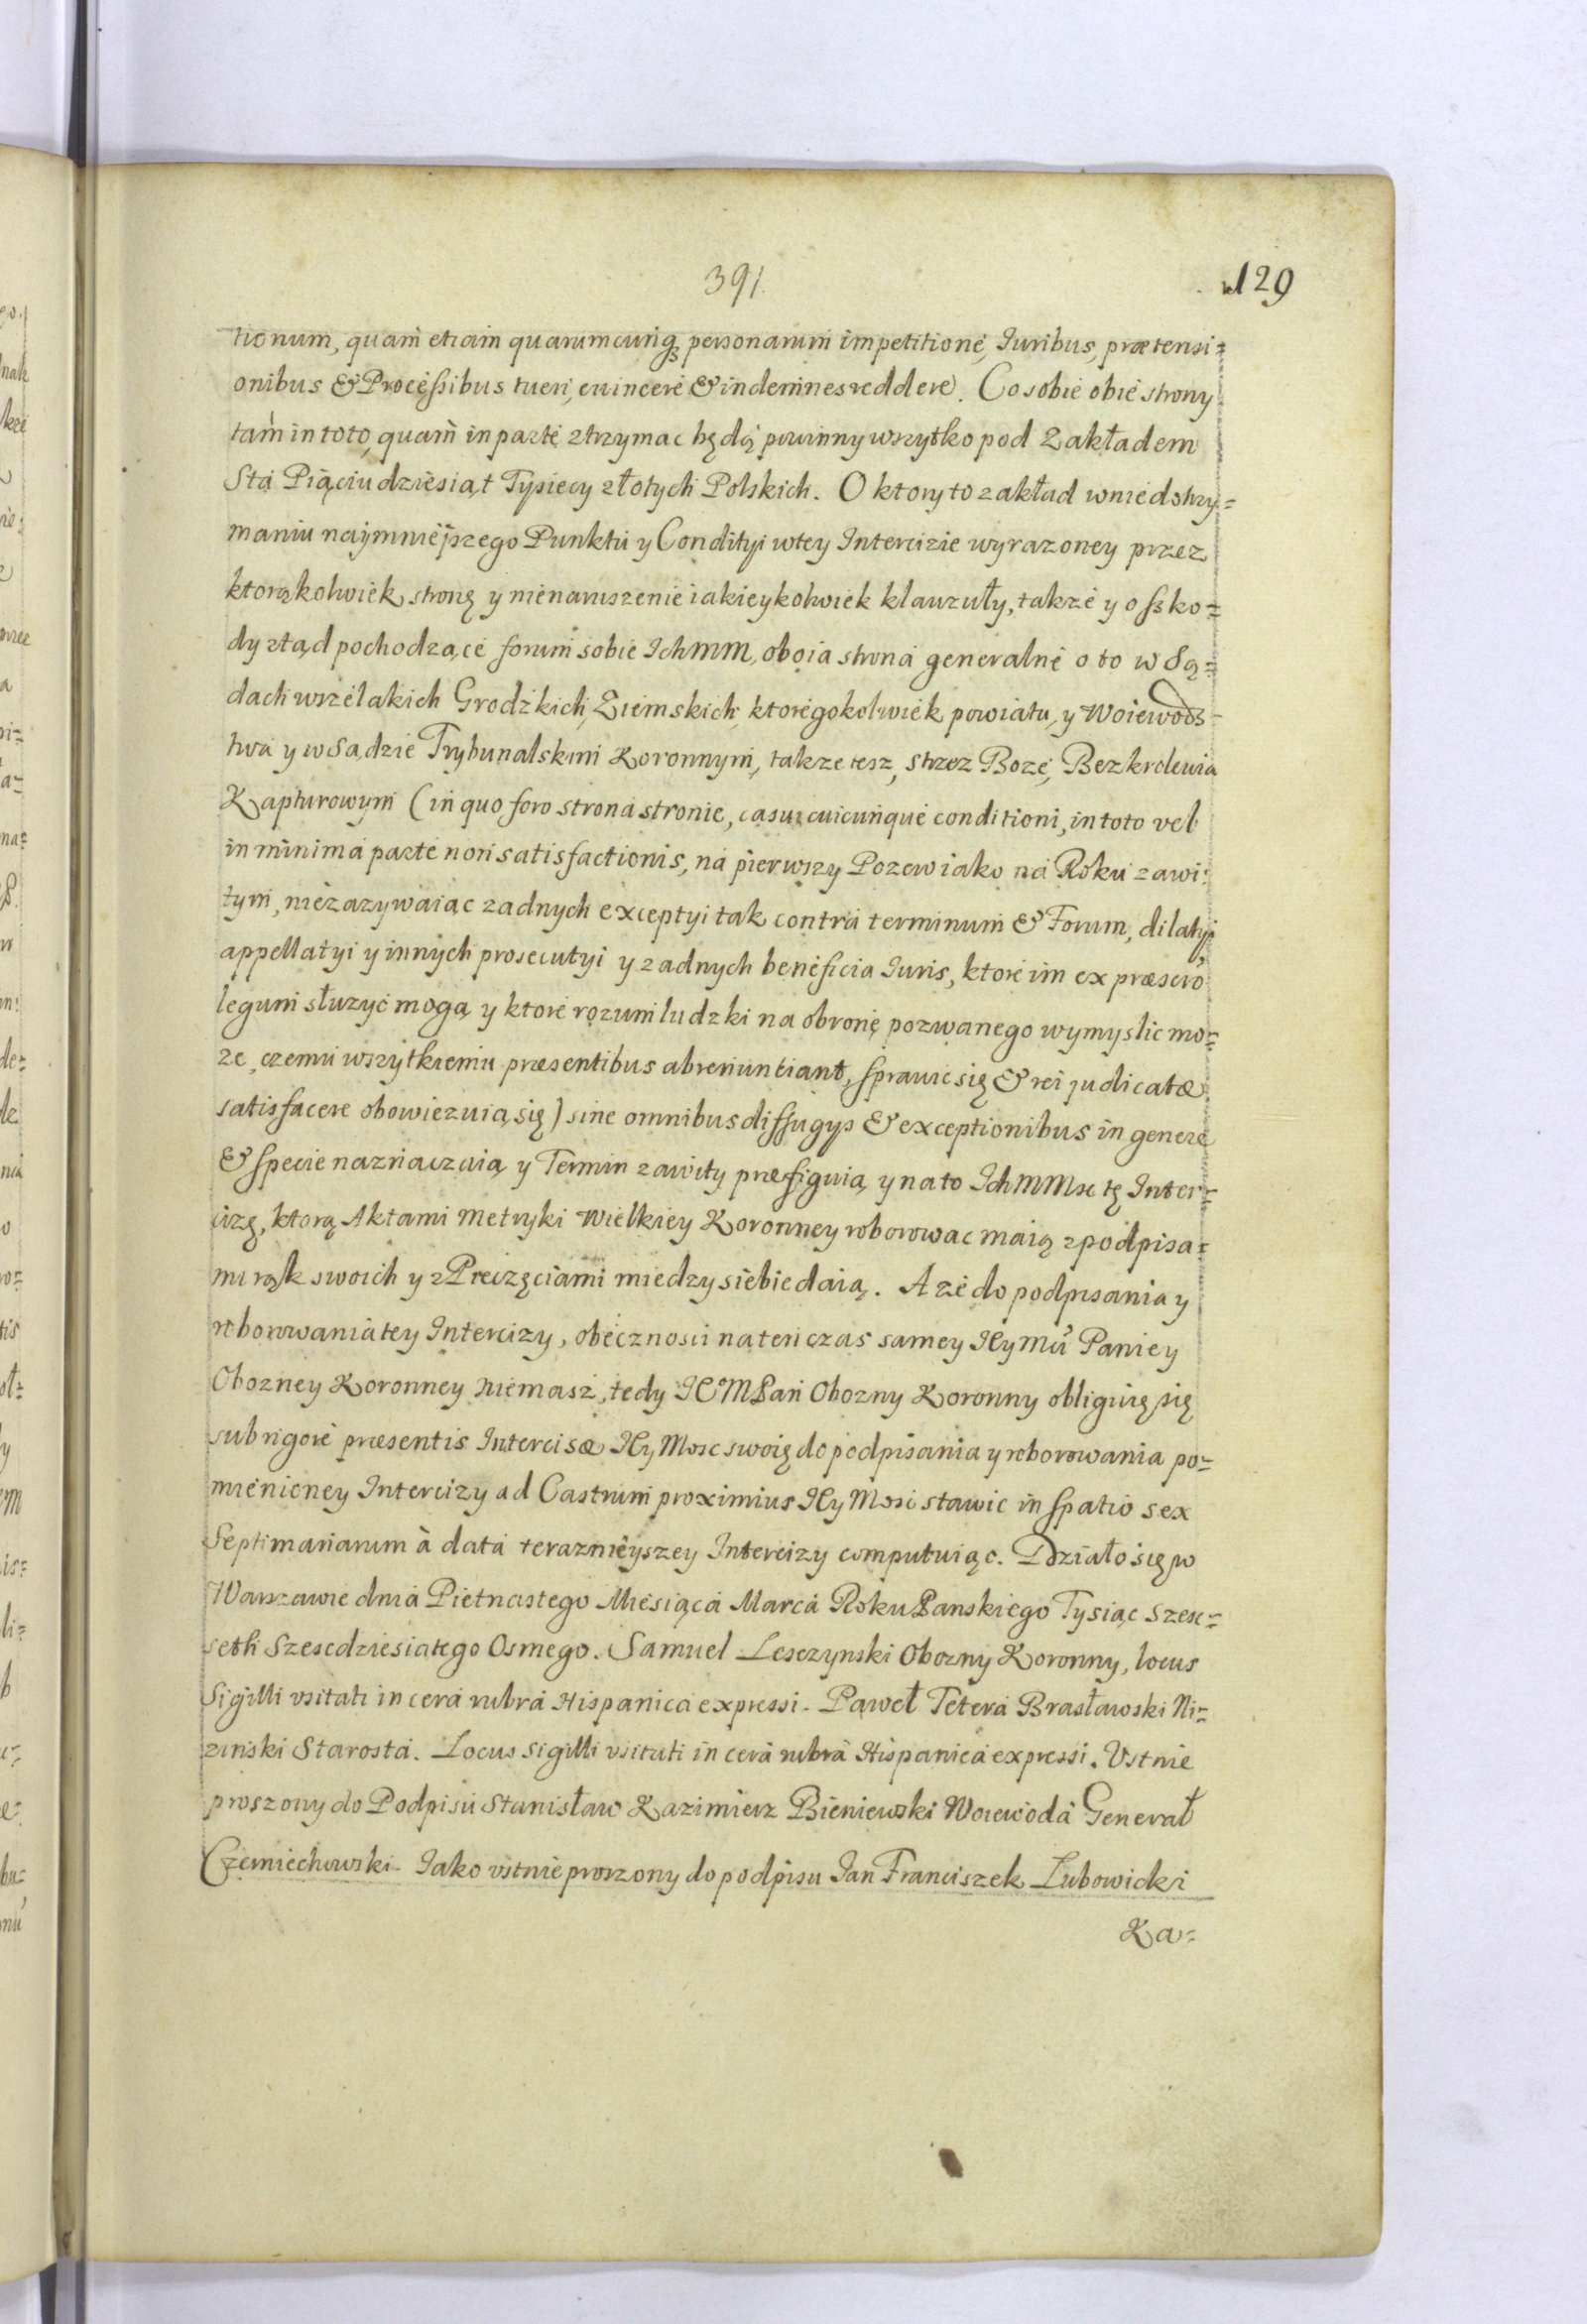 391
129
tionum, quam etiam quarumcunqꝫ personarum impetitione, Iuribus, prætensi=
onibus & Processibus tueri, euincere & indemnes reddere. Co sobie obie strony
tam in toto, quam in parte ztrzymac będą powinny wszytko pod Zakładem
Sta Piąciudziesiąt Tysięcy złotych Polskich. O ktory to zakład w niedotrzy=
maniu naymnieyszego Punktu y Condityi w tey Intercizie wyrazoney przez
ktorąkolwiek stronę y nienaruszenie iakieykolwiek klauzuły, takze y o szko=
dy ztąd pochodzące forum sobie Ich MM, oboia strona generalne o to w Są=
dach wszelakich Grodzkich, Ziemskich, ktoregokolwiek powiatu, y Woiewods=
twa y w Sądzie Trybunalskim Koronnym, takze tesz, strzez Boze, Bezkrolewia
Kapturowym (in quo foro strona stronie, casu cuicunque conditioni, in toto vel
in minima parte non satisfactionis, na pierwszy Pozew iako na Roku zawi=
tym, niezazywaiąc zadnych exceptyi tak contra terminum & Forum, dilatyi,
appellatyi y innych prosecutyi y zadnych beneficia Iuris, ktore im ex præscro
legum słuzyć mogą y ktore rozum ludzki na obronę pozwanego wymyslic mo=
ze, czemu wszytkiemu præsentibus abrenuntiant, sprawić się & rei judicatæ
satisfacere obowiezuią się) sine omnibus diffugys & exceptionibus in genere
& specie naznaczaią y Termin zawity præfiguią y na to Ich MMsc tę Inter=
cizę, ktorą Aktami Metryki Wielkiey Koronney roborowac maią z podpisa=
mi rąk swoich y z Pieczęciami miedzy siebie daią. A ze do podpisania y
roborowania tey Intercizy, obecznosci na ten czas samey Ieymci Paniey
Obozney Koronney niemasz, tedy IEM Pan Obozny Koronny obliguię się
sub rigore præsentis Intercisæ Iey Mosc swoię do podpisania y roborowania po=
mienioney Intercizy ad Castrum proximius Iey Mosci stawic in spatio sex
Septimanarum à data teraznieyszey Intercizy computuiąc. Działo się w
Warszawie dnia Pietnastego Miesiąca Marca Roku Panskiego Tysiąc Szesc=
seth Szescdziesiatego Osmego. Samuel Lesczynski Obozny Koronny, locus
Sigilli vsitati in cera rubra Hispanica expressi. Paweł Tetera Brasławski Ni=
zinski Starosta. Locus Sigilli vsitati in cera rubra Hispanica expressi. Vstnie
proszony do Podpisu Stanisław Kazimierz Bieniewski Woiewoda Generał
Czerniechowski. Iako vstnie proszony do podpisu Ian Franciszek Lubowicki
Ka=